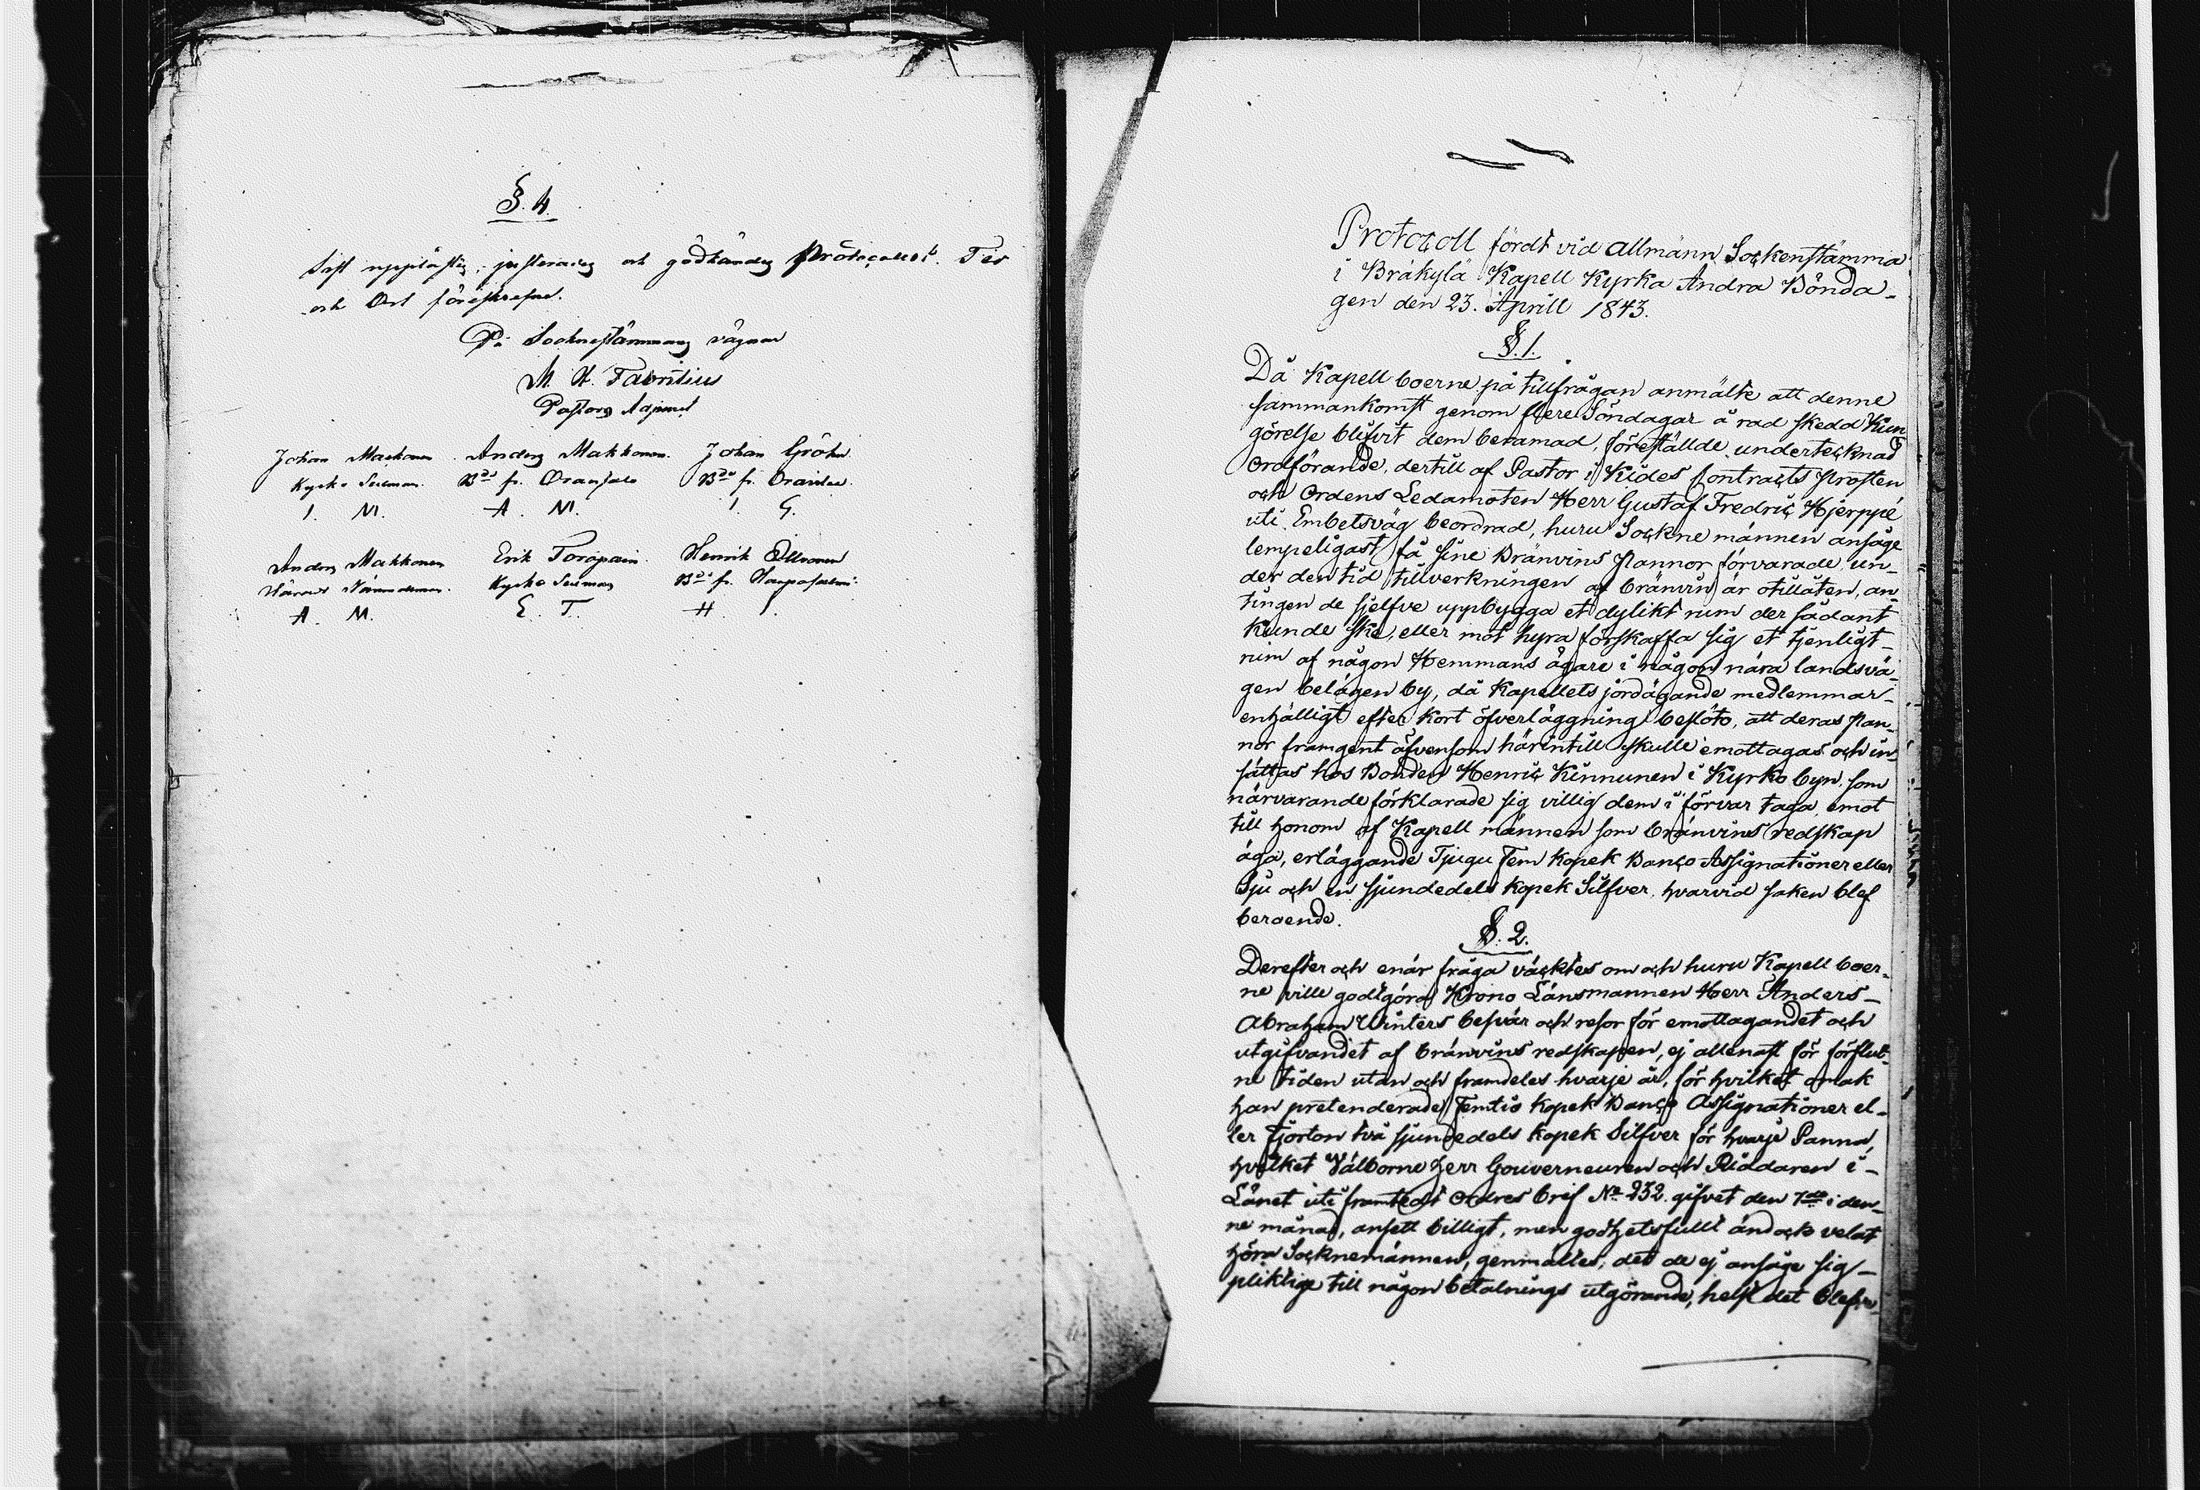 §. 4.
Sist upplästes, justerades och godkändes Protocollet. Tid
och Ort föreskrefne.
På Sockenstämmans vägnar
M. H. Fabritius
Pastors Adjunct
Johan Makkonen Anders Makkonen Johan Gröhn
Kyrko Sexman Bde fr. Oravisalo Bde fr.
I. M. A. M. I. G.
Anders Makkonen Erik Toropain Henrik
Härads Nämndeman. Kyrko Sexman Bde fr.
A. M. E. T. H.
Protocoll fördt vid Allmänn Sockenstämma
i Bräkylä Kapell Kyrka Andra Bönda-
gen den 23. Aprill 1843.
§. 1.
Då Kapellboerne på tillfrågan anmälte att denne
sammankomst genom flere Söndagar å rad skedd Kun
görelse blifvit dem beramad, föreställde undertecknad
Ordförande, dertill af Pastor i Kides Contracts Prosten
och Ordens Ledamoten Herr Gustaf Fredric Hjerppé
uti Embetsväg beordrad, huru Sockne männen ansåge
lempeligast få sine Bränvins Pannor förvarade un-
der den tid tillverkningen af bränvin är otillåten, an-
tingen de sjelfve uppbygga et dylikt rum der sådant
kunde ske, eller mot hyra förskaffa sig et tjenligt
rum af någon Hemmans ägare i någon nära landsvä-
gen belägen by, då Kapellets jordägande medlemmar
enhälligt efter kort öfverläggning beslöto, att deras Pan-
nor framgent äfvensom härintill skulle emottagas och in-
sättas hos Bonden Henric Kinnunen i Kyrko byn, som
närvarande förklarade sig villig dem i förvar taga emot
till honom af Kapell männen som bränvins redskap
äga, erläggande Tjugu Fem kopek Banco Assignationer eller
Sju och en sjundedels kopek Silfver, hvarvid saken blef
beroende.
§. 2.
Derefter och enär fråga väcktes om och huru Kapell boer-
ne ville godtgöra Krono Länsmannen Herr Anders
Abraham Winters besvär och resor för emottagandet och
utgifvandet af bränvins redskapen, ej allenast för förflut-
ne tiden utan och framdeles hvarje år, för hvilket omak
han pretenderade Femtio kopek Banco Assignationer el-
ler Fjorton två sjundedels kopek Silfver för hvarje Panna,
hvilket Välborne Herr Gouverneuren och Riddaren i
Länet uti framtedt Ordres bref No 232. gifvet den 7de i den-
ne månad, ansett billigt, men godhetsfullt ändock velat
höra Socknemännen, genmältes, det de ej ansåge sig
pliktige till någon betalnings utgörande, helst det